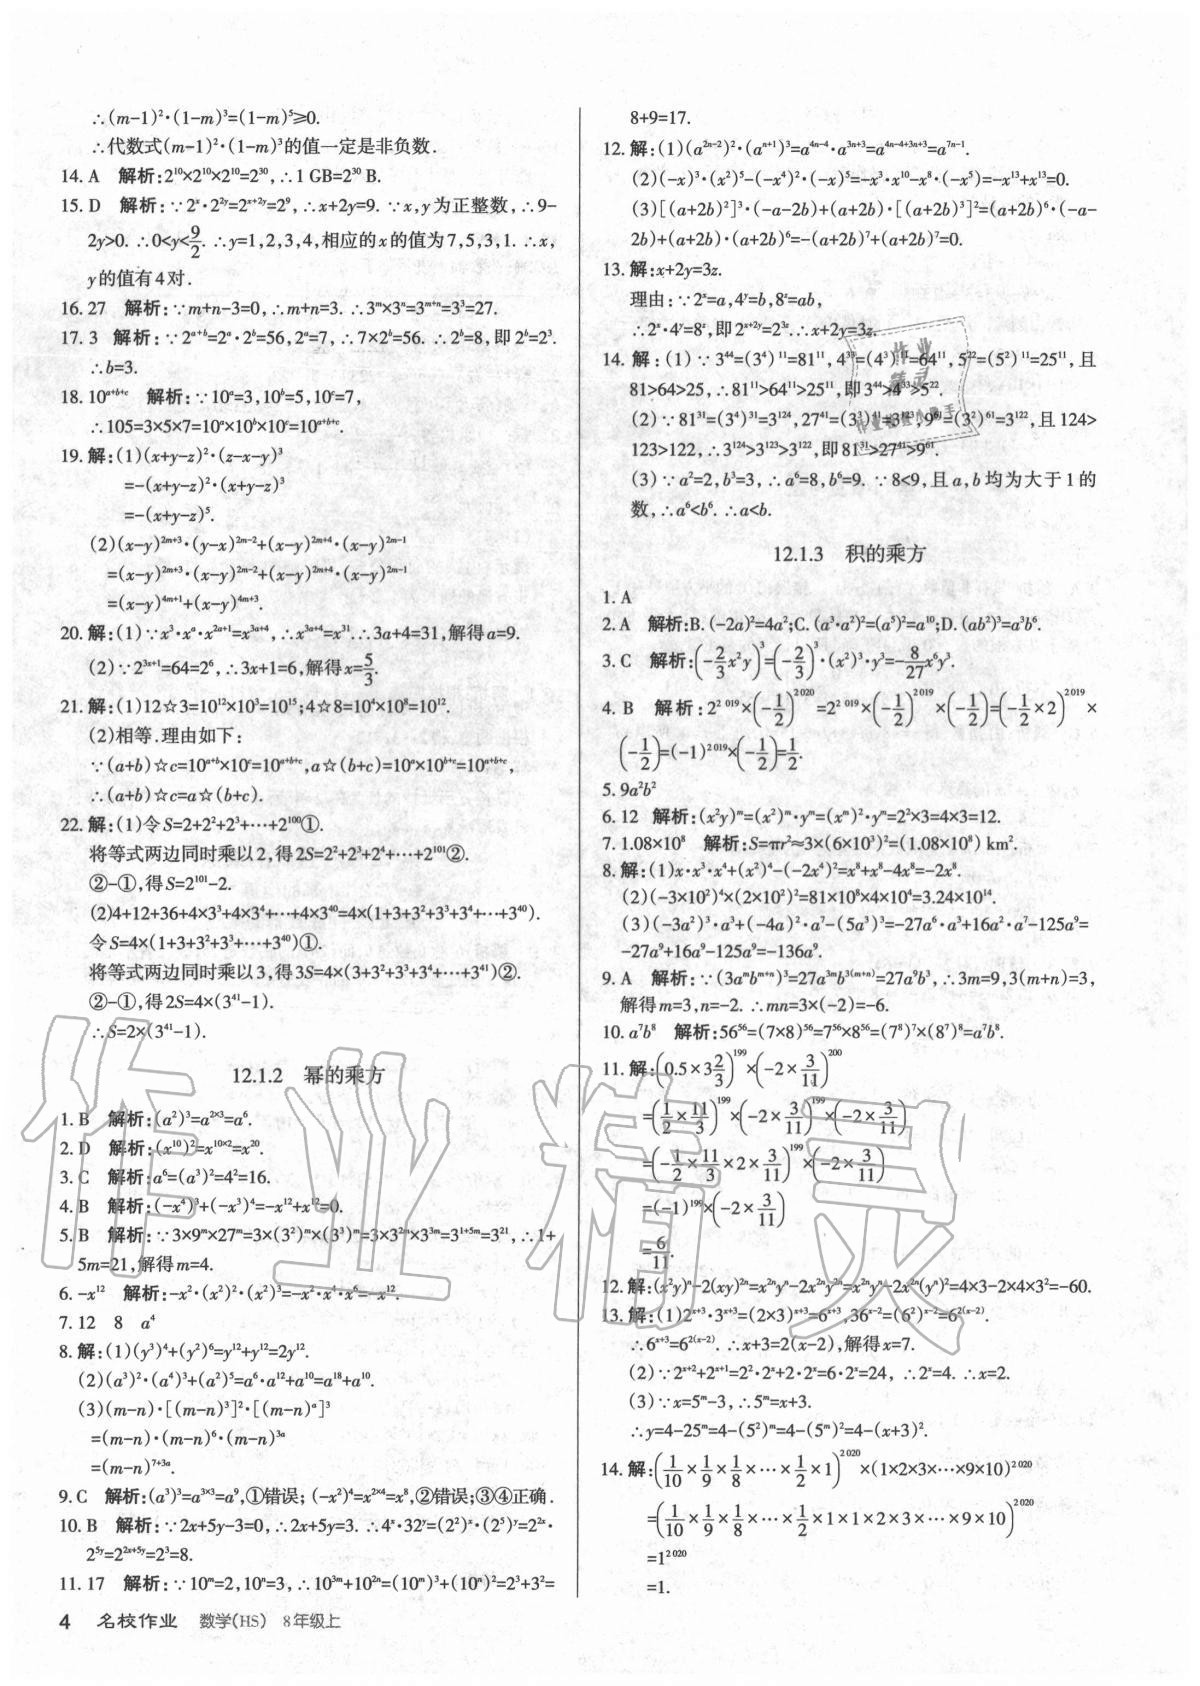 ∴(m-1)²·(1-m)³=(1-m)⁵≥0.
∴代数式(m-1)²·(1-m)³的值一定是非负数.
14. A 解析:2¹⁰×2¹⁰×2¹⁰=2³⁰,∴1 GB=2³⁰ B.
15. D 解析:∵2ˣ·2²ʸ=2ˣ⁺²ʸ=2⁹,∴x+2y=9. ∵x,y为正整数,∴9-
2y>0. ∴0<y<9/2. ∴y=1,2,3,4,相应的x的值为7,5,3,1. ∴x,
y的值有4对.
16. 27 解析:∵m+n-3=0,∴m+n=3. ∴3ᵐ×3ⁿ=3ᵐ⁺ⁿ=3³=27.
17. 3 解析:∵2ᵃ⁺ᵇ=2ᵃ·2ᵇ=56,2ᵃ=7,∴7×2ᵇ=56. ∴2ᵇ=8,即2ᵇ=2³.
∴b=3.
18. 10ᵃ⁺ᵇ⁺ᶜ 解析:∵10ᵃ=3,10ᵇ=5,10ᶜ=7,
∴105=3×5×7=10ᵃ×10ᵇ×10ᶜ=10ᵃ⁺ᵇ⁺ᶜ.
19. 解:(1)(x+y-z)²·(z-x-y)³
=-(x+y-z)²·(x+y-z)³
=-(x+y-z)⁵.
(2)(x-y)²ᵐ⁺³·(y-x)²ᵐ⁻²+(x-y)²ᵐ⁺⁴·(x-y)²ᵐ⁻¹
=(x-y)²ᵐ⁺³·(x-y)²ᵐ⁻²+(x-y)²ᵐ⁺⁴·(x-y)²ᵐ⁻¹
=(x-y)⁴ᵐ⁺¹+(x-y)⁴ᵐ⁺³.
20. 解:(1)∵x³·xᵃ·x²ᵃ⁺¹=x³ᵃ⁺⁴,∴x³ᵃ⁺⁴=x³¹.∴3a+4=31,解得a=9.
(2)∵2³ˣ⁺¹=64=2⁶,∴3x+1=6,解得x=5/3.
21. 解:(1)12☆3=10¹²×10³=10¹⁵;4☆8=10⁴×10⁸=10¹².
(2)相等.理由如下:
∵(a+b)☆c=10ᵃ⁺ᵇ×10ᶜ=10ᵃ⁺ᵇ⁺ᶜ,a☆(b+c)=10ᵃ×10ᵇ⁺ᶜ=10ᵃ⁺ᵇ⁺ᶜ,
∴(a+b)☆c=a☆(b+c).
22. 解:(1)令S=2+2²+2³+···+2¹⁰⁰①.
将等式两边同时乘以2,得2S=2²+2³+2⁴+···+2¹⁰¹②.
②-①,得S=2¹⁰¹-2.
(2)4+12+36+4×3³+4×3⁴+···+4×3⁴⁰=4×(1+3+3²+3³+3⁴+···+3⁴⁰).
令S=4×(1+3+3²+3³+···+3⁴⁰)①.
将等式两边同时乘以3,得3S=4×(3+3²+3³+3⁴+···+3⁴¹)②.
②-①,得2S=4×(3⁴¹-1).
∴S=2×(3⁴¹-1).
12.1.2 幂的乘方
1. B 解析:(a²)³=a²ˣ³=a⁶.
2. D 解析:(x¹⁰)²=x¹⁰ˣ²=x²⁰.
3. C 解析:a⁶=(a³)²=4²=16.
4. B 解析:(-x⁴)³+(-x³)⁴=-x¹²+x¹²=0.
5. B 解析:∵3×9ᵐ×27ᵐ=3×(3²)ᵐ×(3³)ᵐ=3×3²ᵐ×3³ᵐ=3¹⁺⁵ᵐ=3²¹,∴1+
5m=21,解得m=4.
6. -x¹² 解析:-x²·(x²)²·(x²)³=-x²·x⁴·x⁶=-x¹².
7. 12 8 a⁴
8. 解:(1)(y³)⁴+(y²)⁶=y¹²+y¹²=2y¹².
(2)(a³)²·(a⁴)³+(a²)⁵=a⁶·a¹²+a¹⁰=a¹⁸+a¹⁰.
(3)(m-n)·[(m-n)³]²·[(m-n)ᵃ]³
=(m-n)·(m-n)⁶·(m-n)³ᵃ
=(m-n)⁷⁺³ᵃ.
9. C 解析:(a³)³=a³ˣ³=a⁹,①错误; (-x²)⁴=x²ˣ⁴=x⁸,②错误;③④正确.
10. B 解析:∵2x+5y-3=0,∴2x+5y=3. ∴4ˣ·32ʸ=(2²)ˣ·(2⁵)ʸ=2²ˣ·
2⁵ʸ=2²ˣ⁺⁵ʸ=2³=8.
11. 17 解析:∵10ᵐ=2,10ⁿ=3,∴10³ᵐ+10²ⁿ=(10ᵐ)³+(10ⁿ)²=2³+3²=
4 名校作业 数学(HS) 8年级上
8+9=17.
12. 解:(1)(a²ⁿ⁻²)²·(aⁿ⁺¹)³=a⁴ⁿ⁻⁴·a³ⁿ⁺³=a⁴ⁿ⁻⁴⁺³ⁿ⁺³=a⁷ⁿ⁻¹.
(2)(-x)³·(x²)⁵-(-x⁴)²·(-x)⁵=-x³·x¹⁰-x⁸·(-x⁵)=-x¹³+x¹³=0.
(3)[(a+2b)²]³·(-a-2b)+(a+2b)·[(a+2b)³]²=(a+2b)⁶·(-a-
2b)+(a+2b)·(a+2b)⁶=-(a+2b)⁷+(a+2b)⁷=0.
13. 解:x+2y=3z.
理由:∵2ˣ=a,4ʸ=b,8ᶻ=ab,
∴2ˣ·4ʸ=8ᶻ,即2ˣ⁺²ʸ=2³ᶻ.∴x+2y=3z.
14. 解:(1)∵3⁴⁴=(3⁴)¹¹=81¹¹,4³³=(4³)¹¹=64¹¹,5²²=(5²)¹¹=25¹¹,且
81>64>25,∴81¹¹>64¹¹>25¹¹,即3⁴⁴>4³³>5²².
(2)∵81³¹=(3⁴)³¹=3¹²⁴,27⁴¹=(3³)⁴¹=3¹²³,9⁶¹=(3²)⁶¹=3¹²²,且124>
123>122,∴3¹²⁴>3¹²³>3¹²²,即81³¹>27⁴¹>9⁶¹.
(3)∵a²=2,b³=3,∴a⁶=8,b⁶=9. ∵8<9,且a,b均为大于1的
数,∴a⁶<b⁶. ∴a<b.
12.1.3 积的乘方
1. A
2. A 解析:B. (-2a)²=4a²;C. (a³·a²)²=(a⁵)²=a¹⁰;D. (ab²)³=a³b⁶.
3. C 解析:(-2/3x²y)³=(-2/3)³·(x²)³·y³=-8/27x⁶y³.
4. B 解析:2²⁰¹⁹×(-1/2)²⁰²⁰=2²⁰¹⁹×(-1/2)²⁰¹⁹×(-1/2)=(-1/2×2)²⁰¹⁹×
(-1/2)=(-1)²⁰¹⁹×(-1/2)=1/2.
5. 9a²b²
6. 12 解析:(x²y)ᵐ=(x²)ᵐ·yᵐ=(xᵐ)²·yᵐ=2²×3=4×3=12.
7. 1.08×10⁸ 解析:S=πr²≈3×(6×10³)²=(1.08×10⁸) km².
8. 解:(1)x·x³·x⁴+(x²)⁴-(-2x⁴)²=x⁸+x⁸-4x⁸=-2x⁸.
(2)(-3×10²)⁴×(2×10²)²=81×10⁸×4×10⁴=3.24×10¹⁴.
(3)(-3a²)³·a³+(-4a)²·a⁷-(5a³)³=-27a⁶·a³+16a²·a⁷-125a⁹=
-27a⁹+16a⁹-125a⁹=-136a⁹.
9. A 解析:∵(3aᵐbᵐ⁺ⁿ)³=27a³ᵐb³⁽ᵐ⁺ⁿ⁾=27a⁹b³,∴3m=9,3(m+n)=3,
解得m=3,n=-2. ∴mn=3×(-2)=-6.
10. a⁷b⁸ 解析:56⁵⁶=(7×8)⁵⁶=7⁵⁶×8⁵⁶=(7⁸)⁷×(8⁷)⁸=a⁷b⁸.
11. 解:(0.5×3 2/3)¹⁹⁹×(-2×3/11)²⁰⁰
=(1/2×11/3)¹⁹⁹×(-2×3/11)¹⁹⁹×(-2×3/11)
=(-1/2×11/3×2×3/11)¹⁹⁹×(-2×3/11)
=(-1)¹⁹⁹×(-2×3/11)
=6/11.
12. 解:(x²y)ⁿ-2(xy)²ⁿ=x²ⁿyⁿ-2x²ⁿy²ⁿ=x²ⁿyⁿ-2x²ⁿ(yⁿ)²=4×3-2×4×3²=-60.
13. 解:(1)2ˣ⁺³·3ˣ⁺³=(2×3)ˣ⁺³=6ˣ⁺³,36ˣ⁻²=(6²)ˣ⁻²=6²⁽ˣ⁻²⁾.
∴6ˣ⁺³=6²⁽ˣ⁻²⁾. ∴x+3=2(x-2),解得x=7.
(2)∵2ˣ⁺²+2ˣ⁺¹=2²·2ˣ+2·2ˣ=6·2ˣ=24, ∴2ˣ=4. ∴x=2.
(3)∵x=5ᵐ-3,∴5ᵐ=x+3.
∴y=4-25ᵐ=4-(5²)ᵐ=4-(5ᵐ)²=4-(x+3)².
14. 解:(1/10×1/9×1/8×···×1/2×1)²⁰²⁰×(1×2×3×···×9×10)²⁰²⁰
=(1/10×1/9×1/8×···×1/2×1×1×2×3×···×9×10)²⁰²⁰
=1²⁰²⁰
=1.
作业精灵
作业
精灵